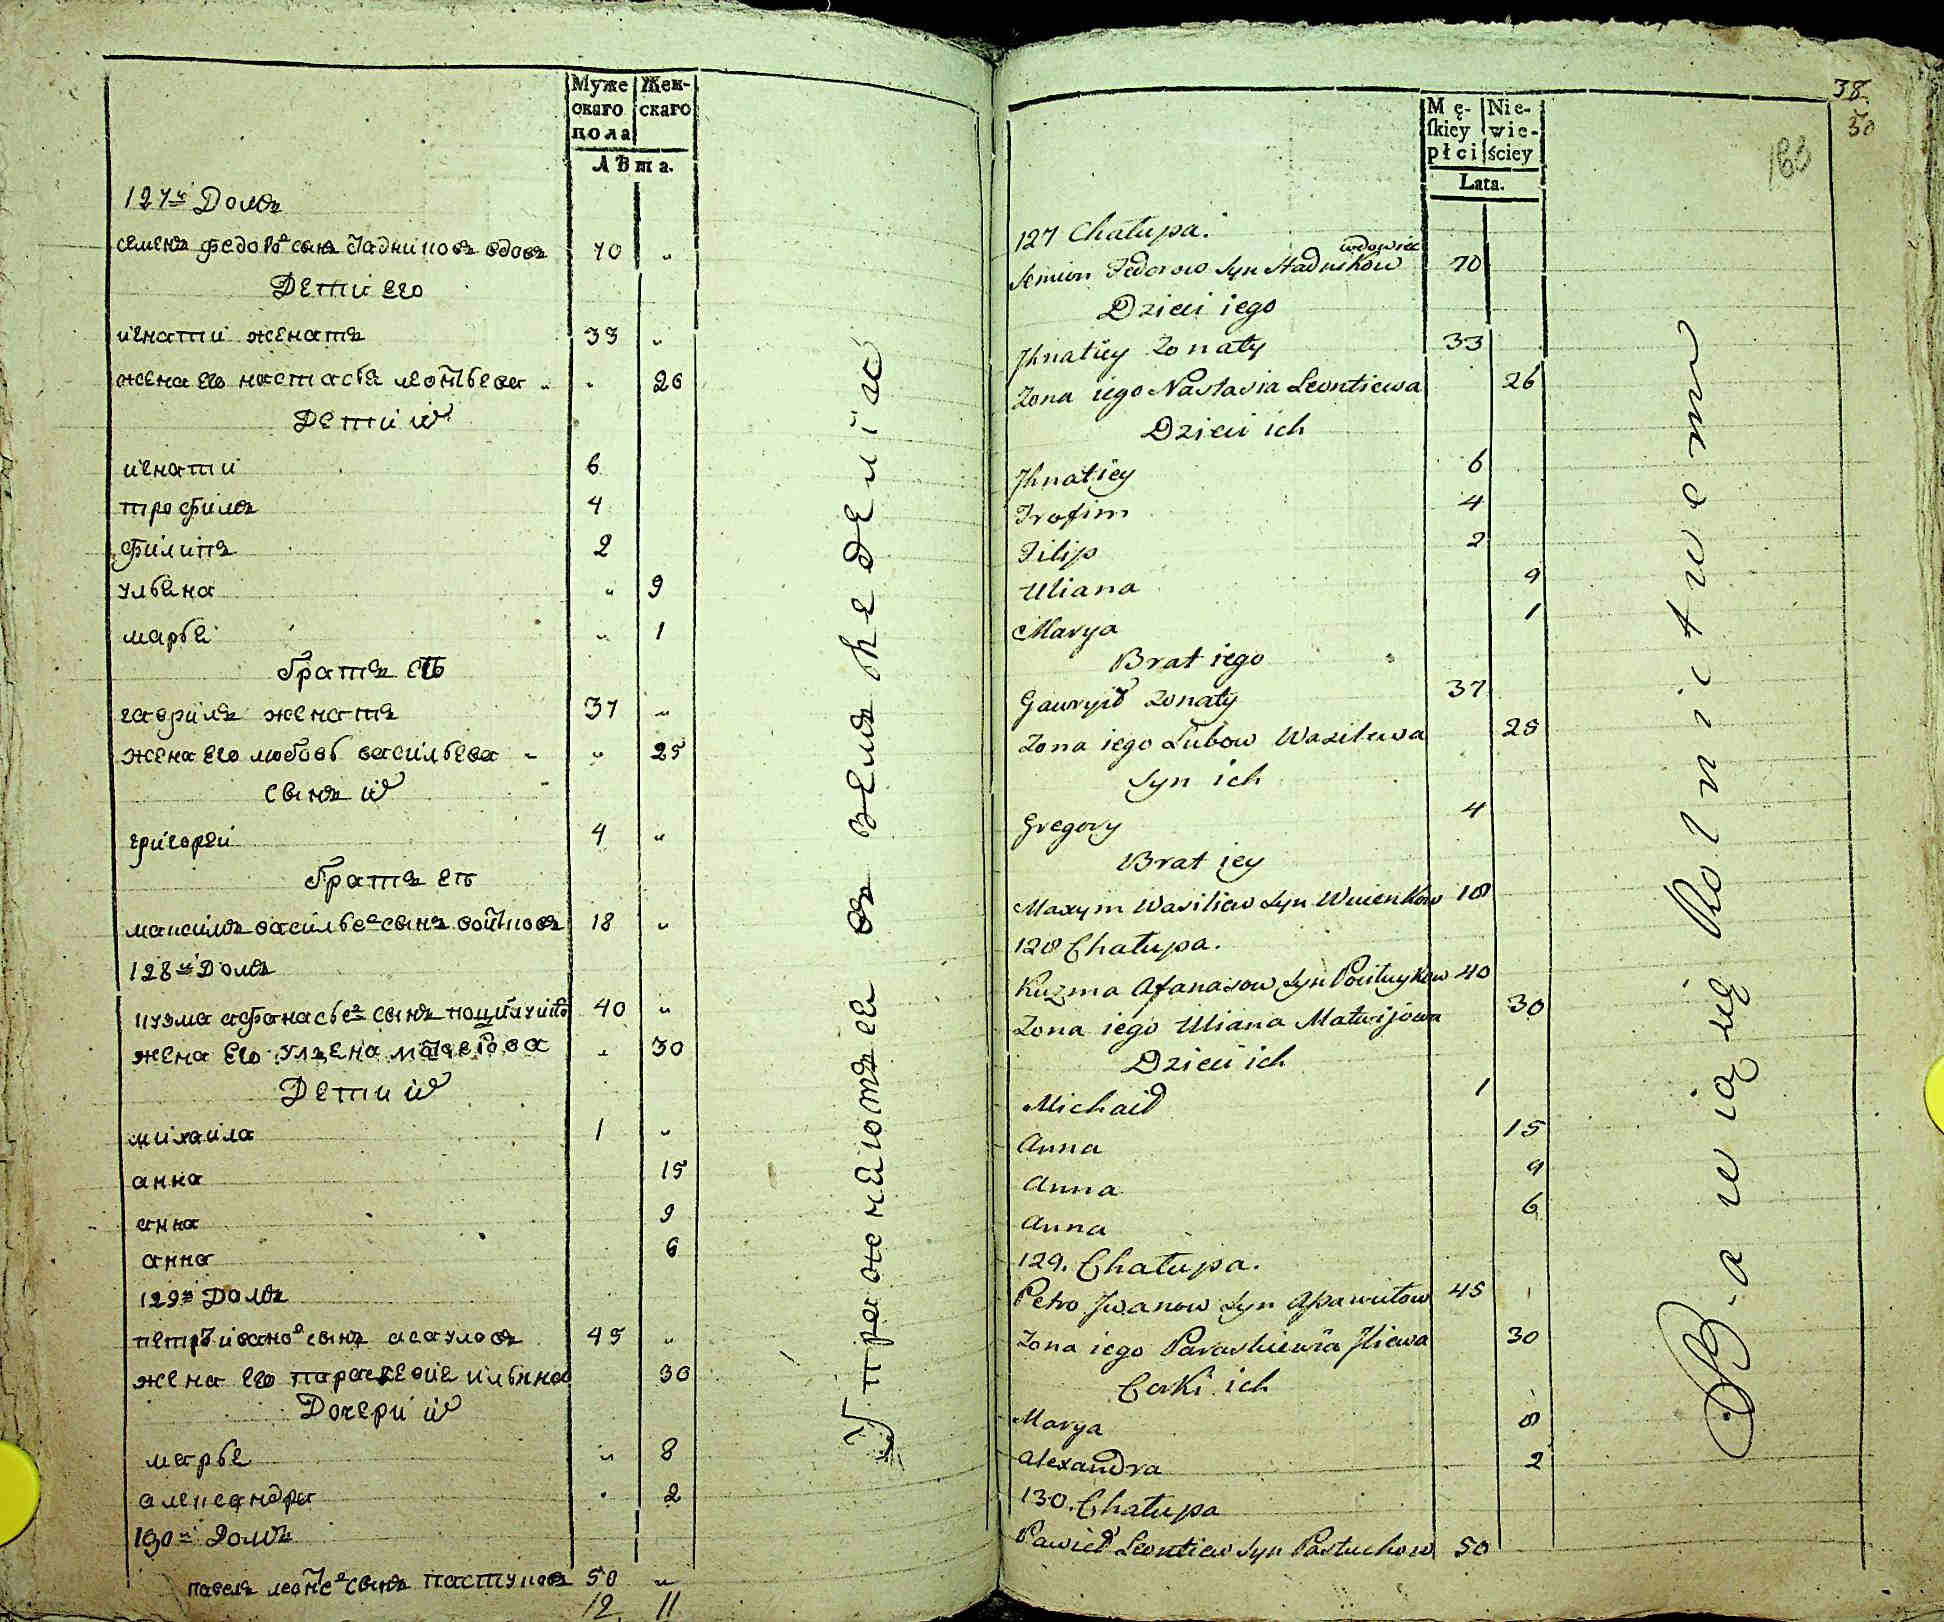 Муже
скаго
пола
Жен-
скаго
Лѣта.
127й Домъ
семенъ федоровъ сынъ стадниковъ вдовъ 70 "
Дети его
игнатий женатъ 33 "
жена его настасья леонтьева " 26
Дети их
игнатий 6
трофимъ 4
филипъ 2
ульяна " 9
марья " 1
братъ его
гаврилъ женатъ 37 "
жена его любовь васильева " 25
сынъ их
григорей 4 "
братъ ея
максимъ васильевъ сынъ 18 "
128й Домъ
кузма афанасьевъ сынъ 40 "
жена его улиена матвеева " 30
Дети их
михаила 1 "
анна 15
анна 9
анна 6
129й Домъ
петръ ивановъ сынъ асауловъ 45 "
жена его параскевия ильина 30
Дочери их
марья " 8
александра " 2
130й Домъ
павелъ леонтьевъ сынъ пастуховъ 50 "
12. 11
Упражняются въ земледелии
38
50
163
Mę-
skiey
płci
Nie-
wie-
ściey
Lata.
127 Chałupa.
wdowiec
Semion Fedorow Syn Stadnikow 70
Dzieci iego
Jhnatiey Żonaty 33
Żona iego Nastasia Leontiewa 26
Dzieci ich
Jhnatiey 6
Trofim 4
Filip 2
Uliana 9
Marya 1
Brat iego
Gawryił żonaty 37
Żona iego Lubow Wasilewa 25
Syn ich
Gregory 4
Brat iey
Maxym Wasiliew Syn 18
128 Chałupa.
Kuzma Afanasow Syn 40
Żona iego Uliana Matwijowa 30
Dzieci ich
Michaił 1
Anna 15
Anna 9
Anna 6
129. Chałupa.
Petro Jwanow Syn 45
Żona iego Paraskiewia Jliewa 30
Corki ich
Marya 8
Alexandra 2
130. Chałupa
Pawieł Leontiew Syn Pastuchow 50
Bawią się Rolnictwem